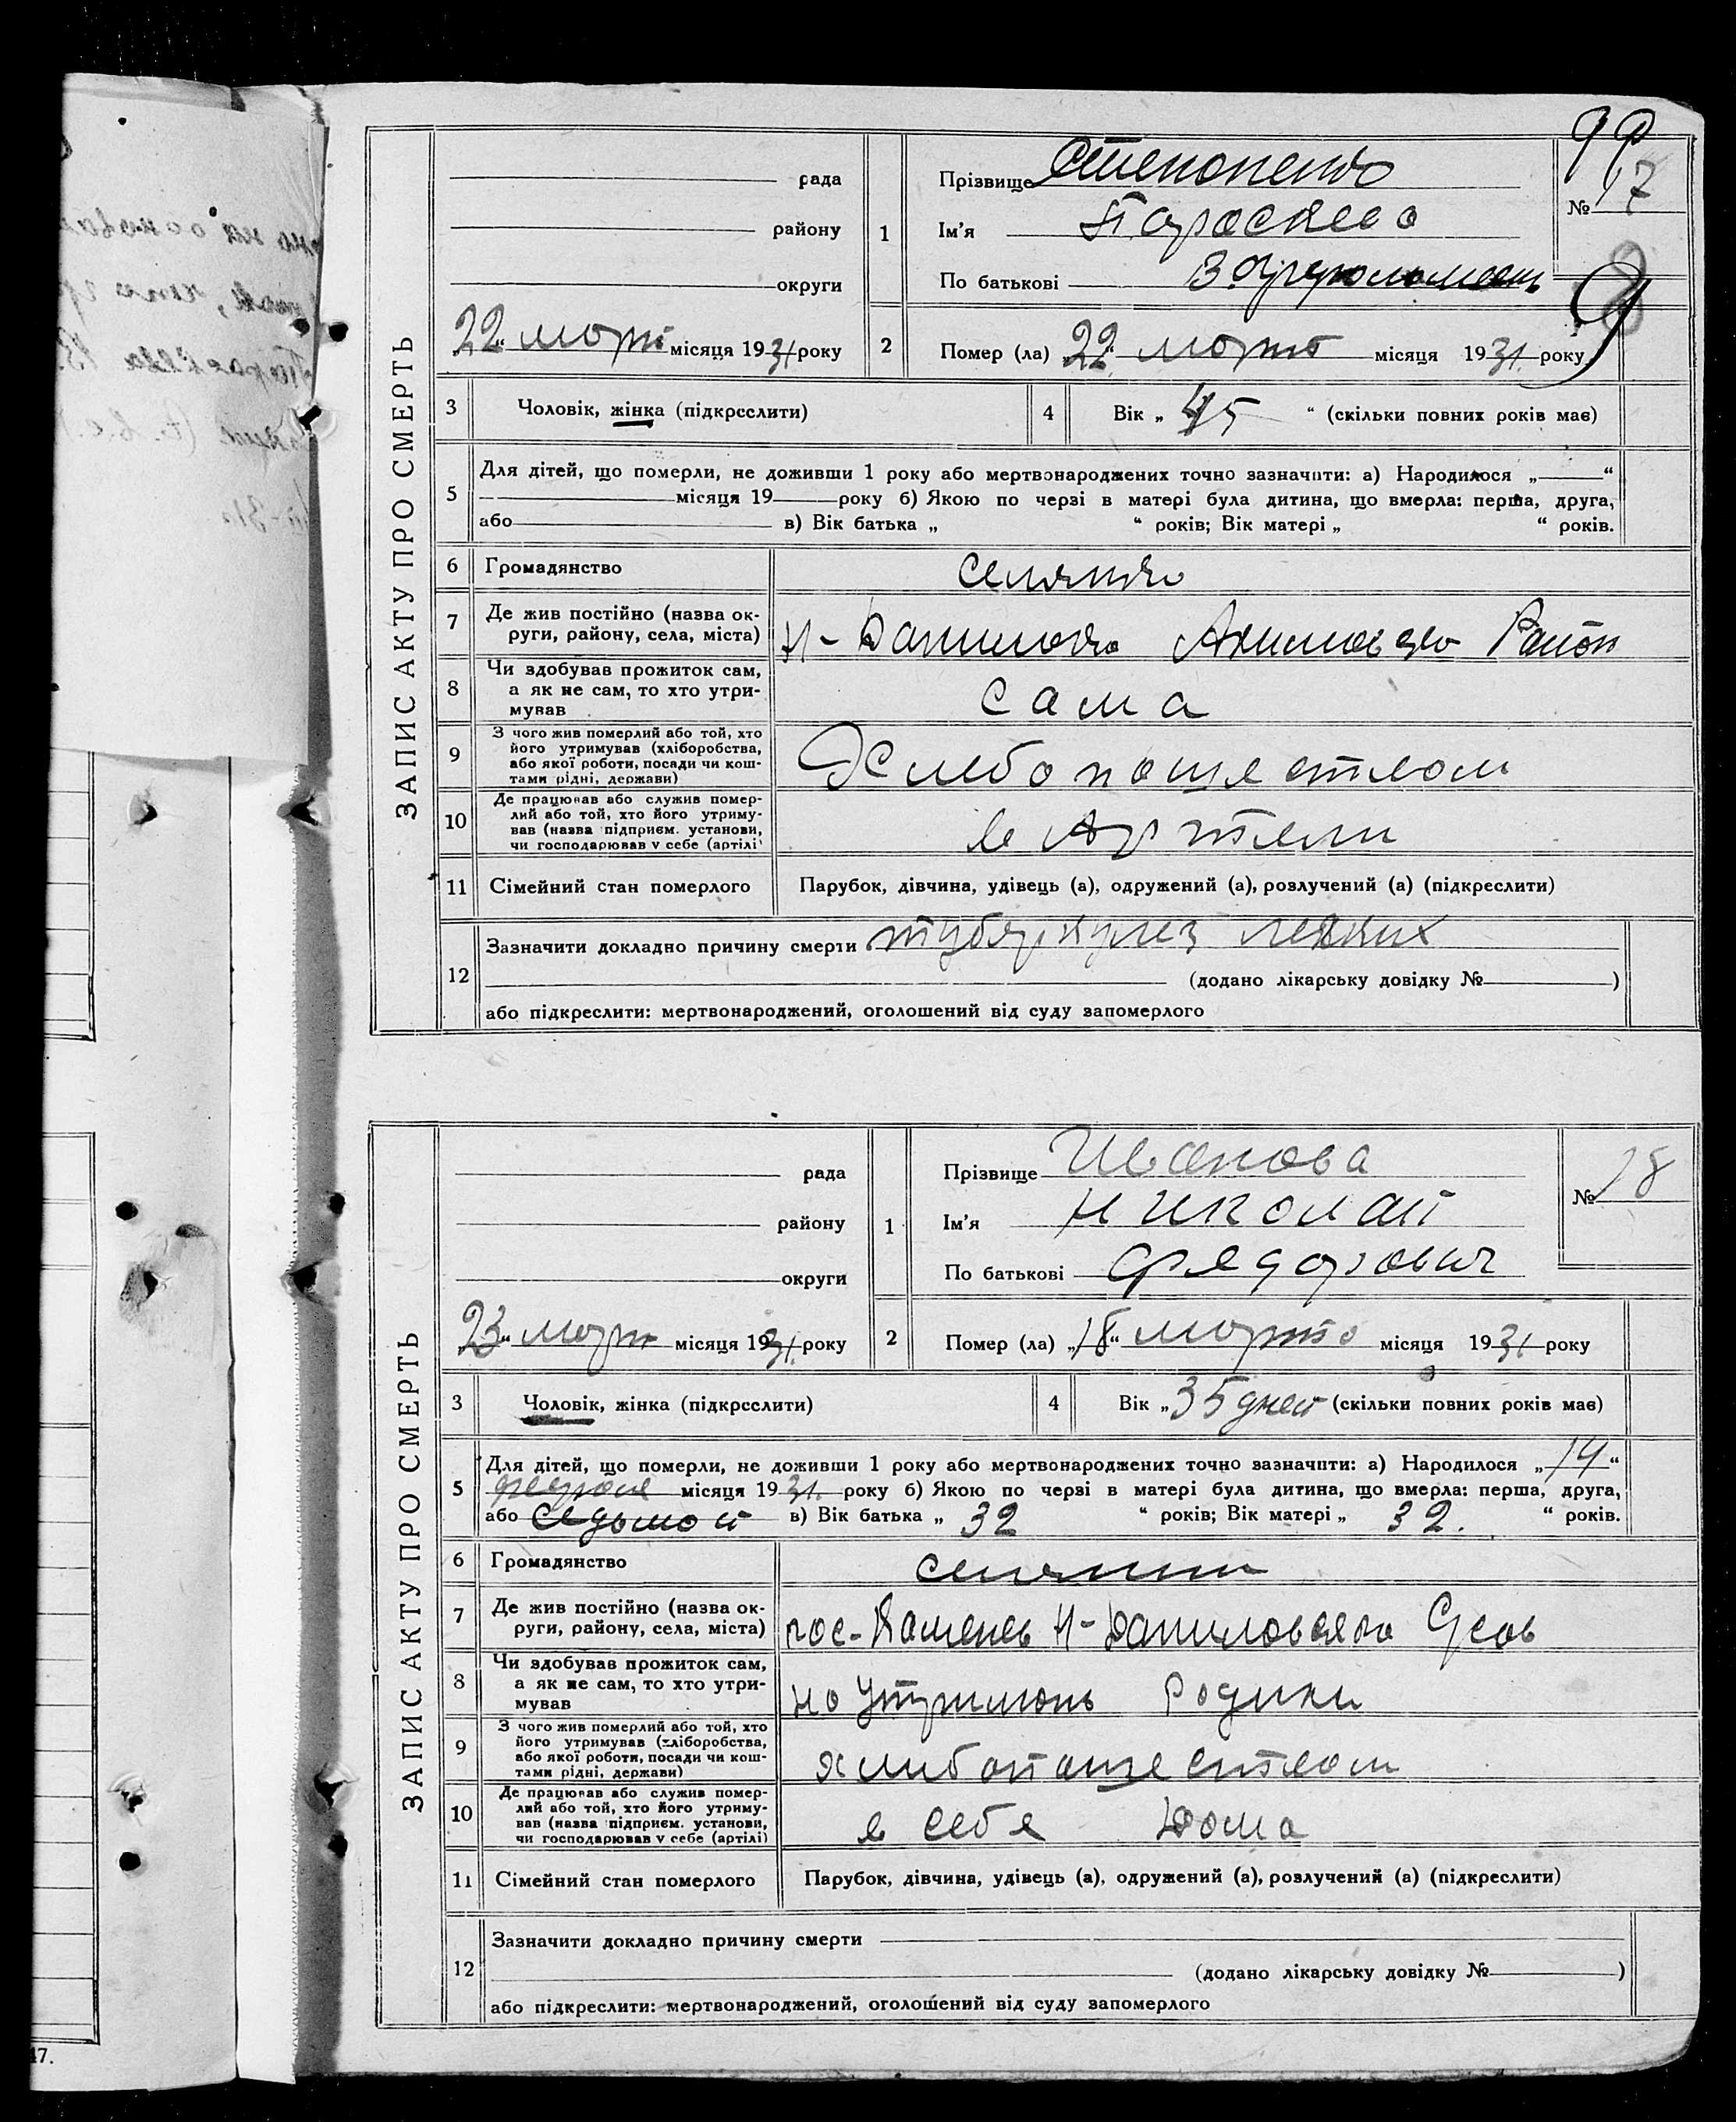 99
ЗАПИС АКТУ ПРО СМЕРТЬ
рада
району
округи
„22“ март місяця 1931 року
1
Прізвище Степоненко
Ім'я Параскева
По батькові
№ 17
2
Помер (ла) „22“ марта місяця 1931. року
3
Чоловік, жінка (підкреслити)
4
Вік „45“ (скільки повних років має)
5
Для дітей, що померли, не доживши 1 року або мертвонароджених точно зазначити: а) Народилося „ “
місяця 19 року б) Якою по черзі в матері була дитина, що вмерла: перша, друга,
або в) Вік батька „ “ років; Вік матері „ “ років.
6
Громадянство
селянка
7
Де жив постійно (назва ок-
руги, району, села, міста)
Н-Даниловка Район
8
Чи здобував прожиток сам,
а як не сам, то хто утри-
мував
сама
9
З чого жив померлий або той, хто
його утримував (хліборобства,
або якої роботи, посади чи кош-
тами рідні, держави)
Хлебопашеством
10
Де працював або служив помер-
лий або той, хто його утриму-
вав (назва підприєм. установи,
чи господарював у себе (артілі)
в Артели
11
Сімейний стан померлого
Парубок, дівчина, удівець (а), одружений (а), розлучений (а) (підкреслити)
12
Зазначити докладно причину смерти туберкулез легких
(додано лікарську довідку № )
або підкреслити: мертвонароджений, оголошений від суду запомерлого
ЗАПИС АКТУ ПРО СМЕРТЬ
рада
району
округи
„23“ март місяця 1931. року
1
Прізвище Иванова
Ім'я Николай
По батькові Федорович
№ 18
2
Помер (ла) „18“ марта місяця 1931 року
3
Чоловік, жінка (підкреслити)
4
Вік „35 дней (скільки повних років має)
5
Для дітей, що померли, не доживши 1 року або мертвонароджених точно зазначити: а) Народилося „14“
місяця 1931. року б) Якою по черзі в матері була дитина, що вмерла: перша, друга,
або седьмой в) Вік батька „ 32 “ років; Вік матері „ 32. “ років.
6
Громадянство
селянин
7
Де жив постійно (назва ок-
руги, району, села, міста)
пос-Камень Н-Даниловкаго
8
Чи здобував прожиток сам,
а як не сам, то хто утри-
мував
на утримань Родини
9
З чого жив померлий або той, хто
його утримував (хліборобства,
або якої роботи, посади чи кош-
тами рідні, держави)
хлибопашеством
10
Де працював або служив помер-
лий або той, хто його утриму-
вав (назва підприєм. установи,
чи господарював у себе (артілі)
в себе Дома
11
Сімейний стан померлого
Парубок, дівчина, удівець (а), одружений (а), розлучений (а) (підкреслити)
12
Зазначити докладно причину смерти
(додано лікарську довідку № )
або підкреслити: мертвонароджений, оголошений від суду запомерлого
47.